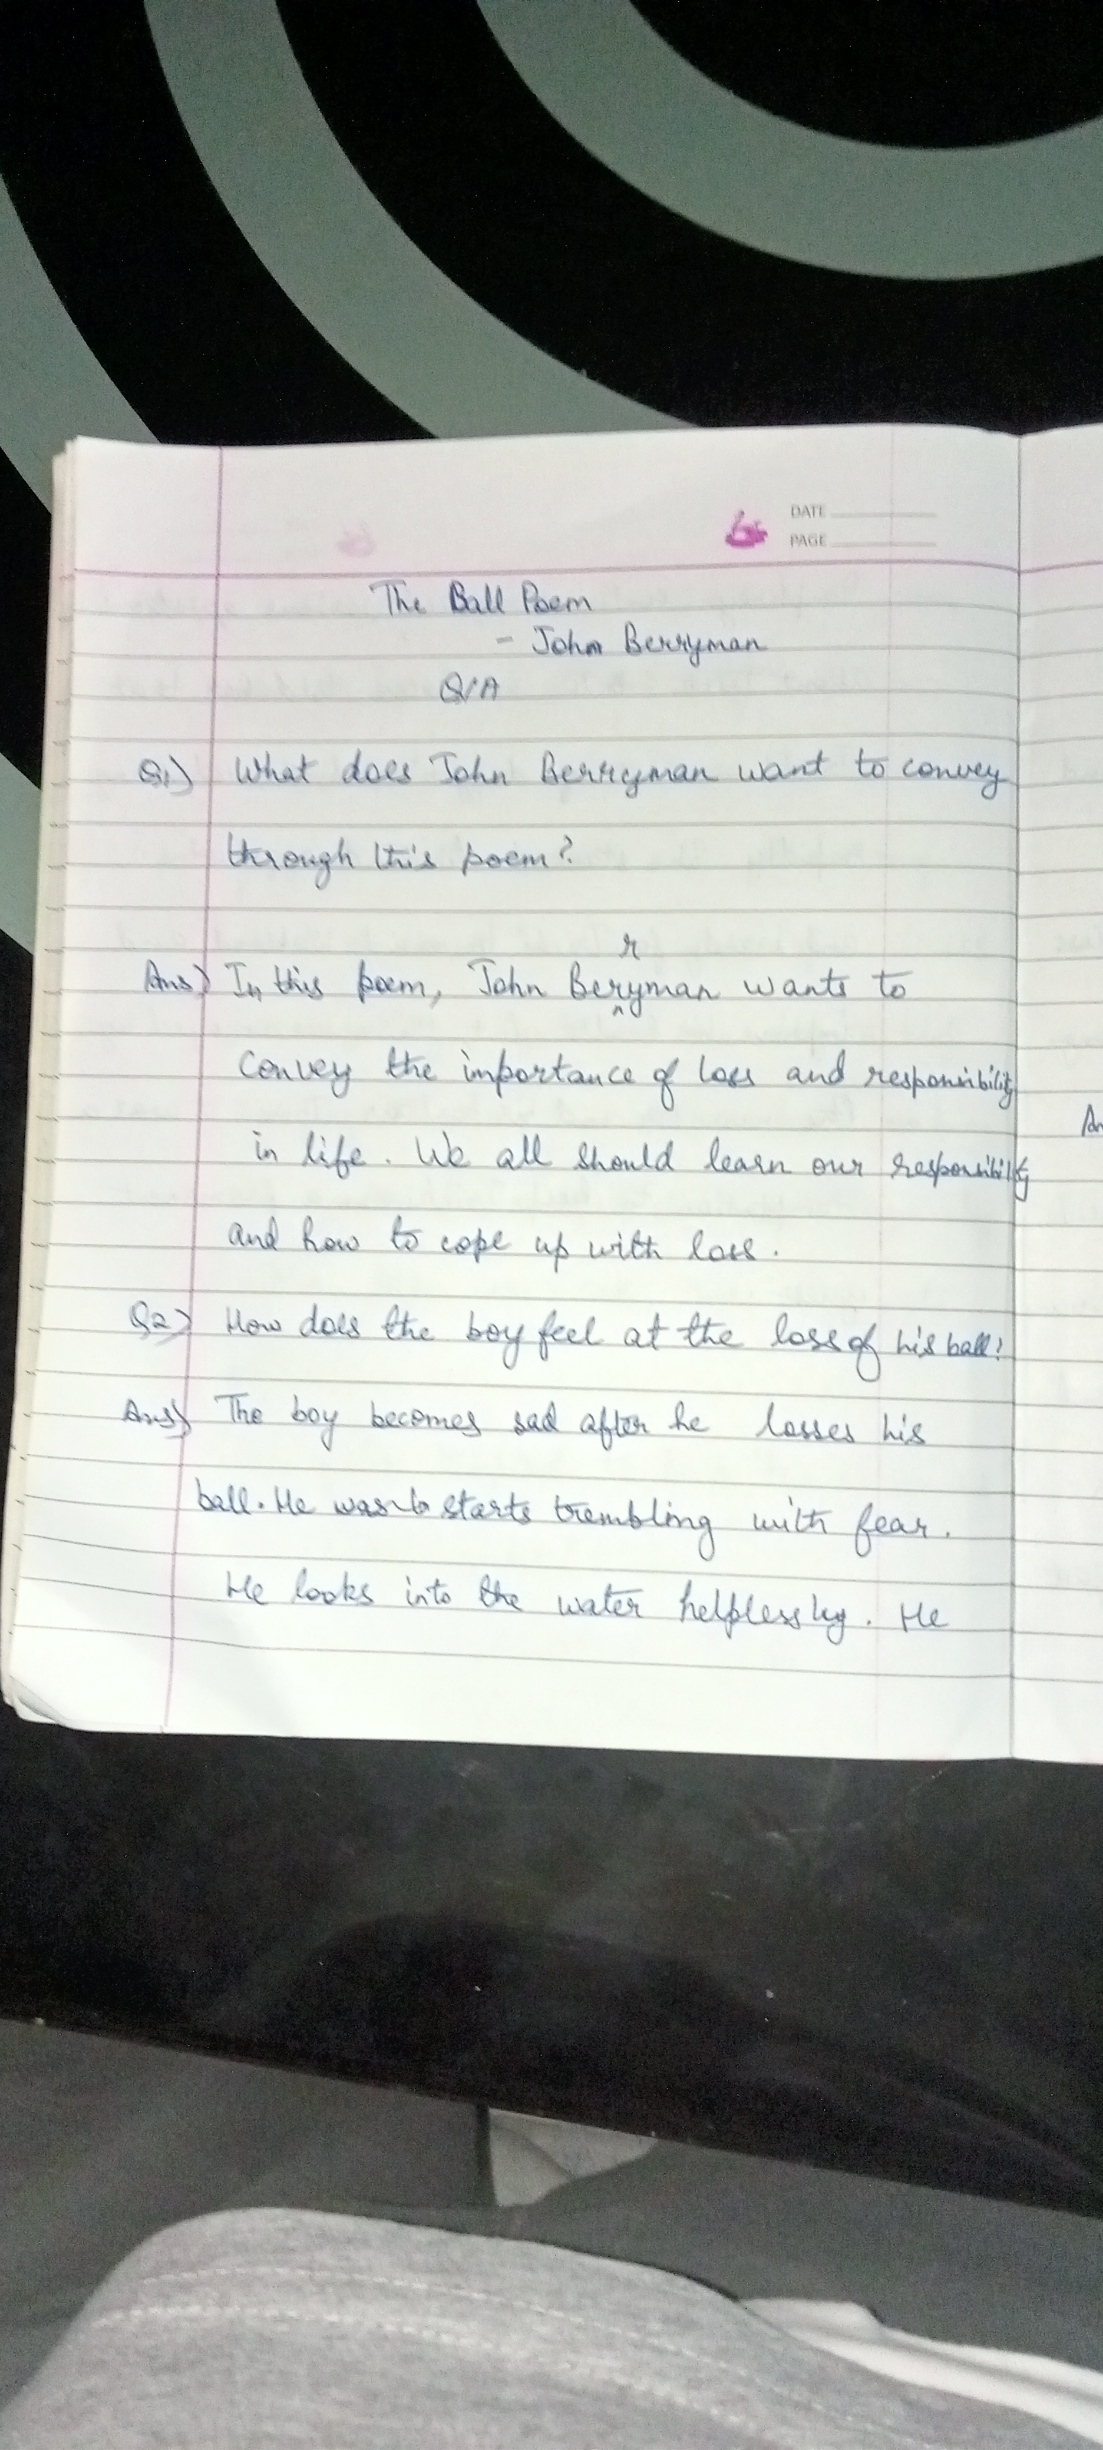 DATE
PAGE
The Ball Poem
- John Berryman
Q/A
Q1) What does John Berryman want to convey
through this poem?
r
Ans) In this poem, John Beryman wants to
^
convey the importance of loss and responsibility
in life. We all should learn our responsibility
and how to cope up with loss.
Q2) How does the boy feel at the loss of his ball?
Ans) The boy becomes sad after he losses his
ball. He starts trembling with fear.
He looks into the water helplessly. He